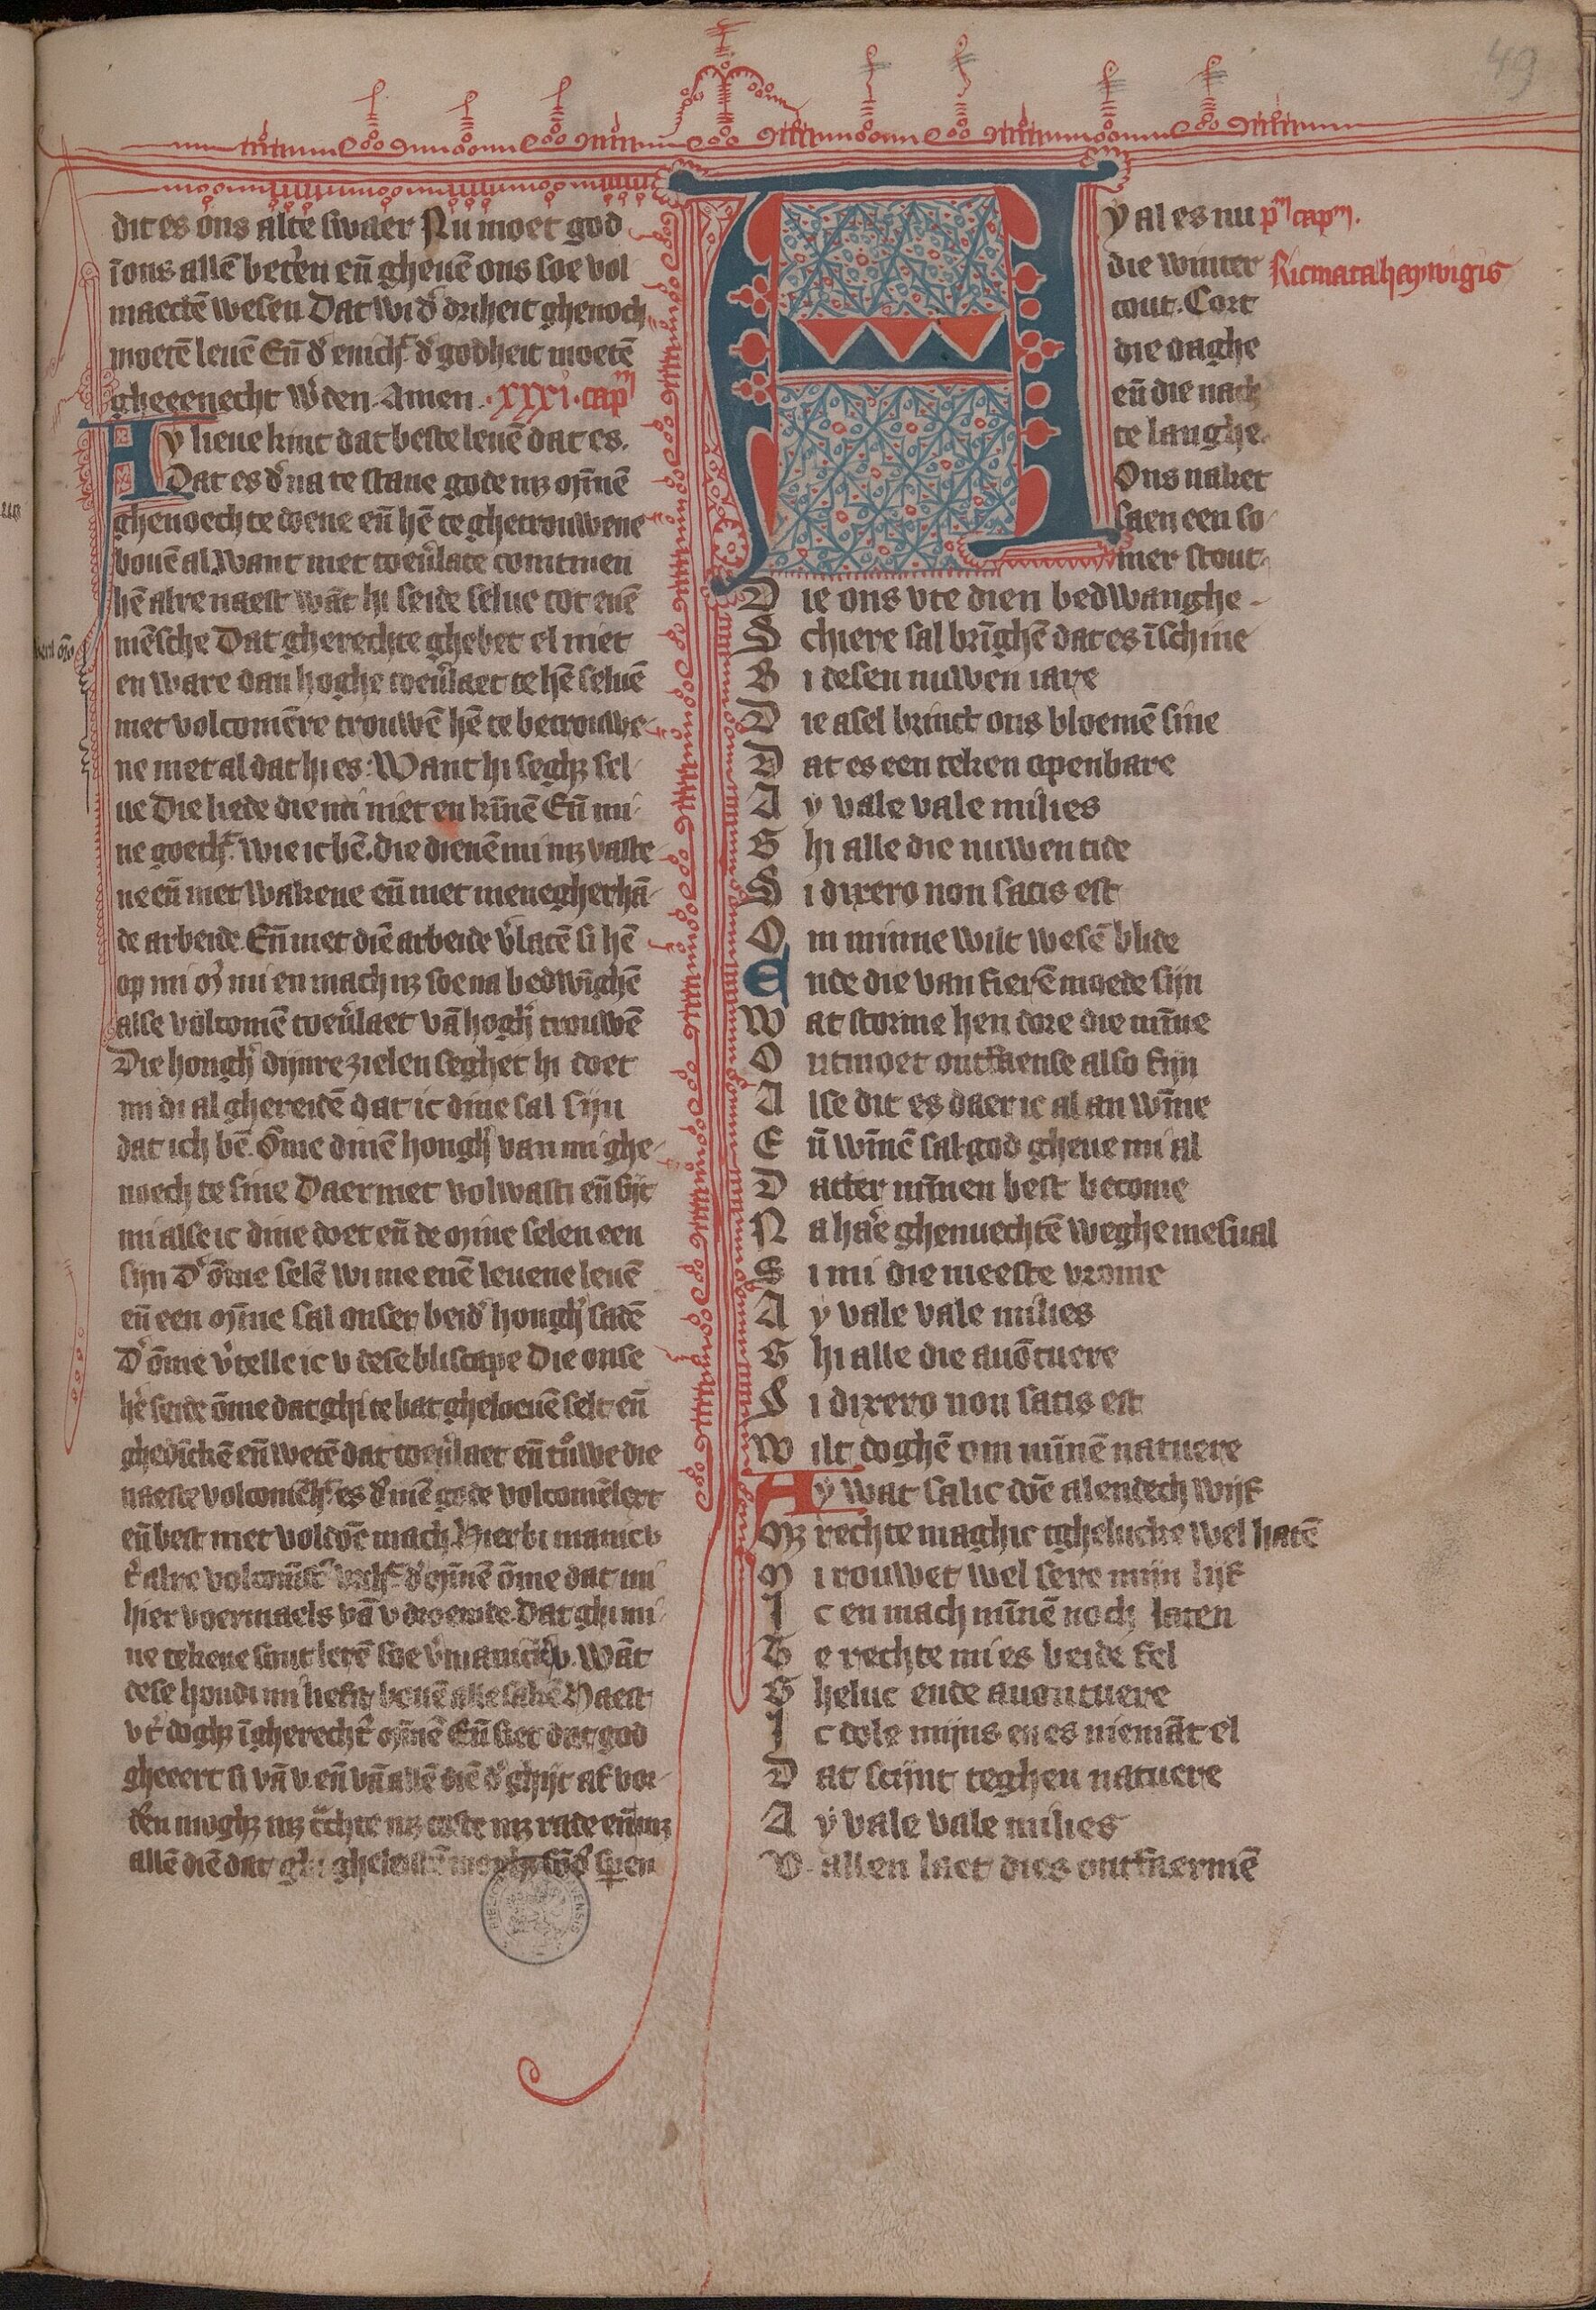 49
dit es ons alte swaer Nu moet god
īons allē bet'en eñ gheuē ons soe vol
maectē wesen Dat wi d' driheit ghenoch
moetē leuē Eñ d' enich^t d' godheit moetē
gheeenecht w'den. Amen. .xxxi. cap^m
Ay lieue kint dat beste leuē dat es.
Dat es d'na te stane gode mz mīnē
ghenoech te doene eñ hē te ghetrouwene
bouē al. Want met toeu'late comtmen
hē alre naest wāt hi seide selue tot enē
mēsche Dat gherechte ghebet el niet
en ware dan hoghe toeu'laet te hē seluē
met volcomēre trouwē hē te betrouwe
ne met al dat hi es: Want hi seghz sel
ue Die liede die mi niet en kīnē Eñ mi
ne goech^t. wie ic bē. die dienē mi mz vaste
ne eñ met wakene eñ met menegherhā
de arbeide. Eñ met diē arbeide v'latē si hē
op mi m' mi en mach mz soe na bedwīghē
alse volcomē toeu'laet vā hogh' trouwē
Die hongh' dijnre zielen seghet hi doet
mi di al ghereidē dat ic dine sal sijn
dat ich bē. Ōme dinē hongh' van mi ghe
noech te sine Daer met volwasti eñ bijt
mi alse ic dine doet eñ de mine selen een
sijn D' ōme selē wi me enē leuene leuē
eñ een mīne sal onser beid' hongh' sadē
D' ōme v'telle ic v dese bliscape Die onse
he' seide ōme dat ghi te bat gheloeuē selt eñ
ghedīckē eñ wetē dat toeu'laet eñ t°uwe die
naeste volcomēh^t. es d' mē gode volcomēlect
eñ best met voldoē mach. Hier bi manic v
t' alre volcomēst' v'ih^t d' mīnē ōme dat mi
hier voermaels vā v droemde. Dat ghi mi
ne tekene sout lerē soe v'manic v. Wāt
dese houdi mi liefst bouē alle sakē Haest
v t' doghz ī gherecht' mīnē Eñ siet dat god
gheeert si vā v. eñ vā allē diē d' ghijt af vor
d'en moghz mz c°chte mz coste mz rade eñ mz
allē diē dat ghi gheleistē moghz sōd' sp̄en
Ay al es nu p^m cap^m.
die winter Ricmata haywigis
cout. Cort
die daghe
eñ die nach
te langhe.
Ons naket
saen een so
mer stout
Die ons vte dien bedwanghe
Schiere sal brīghē dat es ī schine
Bi desen nuwen iare
Die asel brinct ons bloemē fine
Dat es een teken openbare
Ay vale vale milies
Ghi alle die nuwen tide
Si dixero non satis est
Om minne wilt wesē blide
Ende die van fierē moede sijn
Wat storme hen dore die mīne
Ontmoet ontfaense also fijn
Alse dit es daer ic al an wīne
Eñ wīnē sal. god gheue mi al
Datter mīnen best become
Na hare ghenuechtē weghe mesual
Si mi die meeste vrome
Ay vale vale milies
Ghi alle die auōtuere
Si dixero non satis est
Wilt doghē om mīnē natuere
Ay wat salic doē alendech wijf
Mz rechte maghic tghelucke wel hatē
Mi rouwet wel sere mijn lijf
Ic en mach mīnē noch laten
Te rechte mi es beide fel
Gheluc ende auontuere
Ic dole mijns en es niemāt el
Dat scijnt teghen natuere
Ay vale vale milies
V allen laet dies ontfaermē